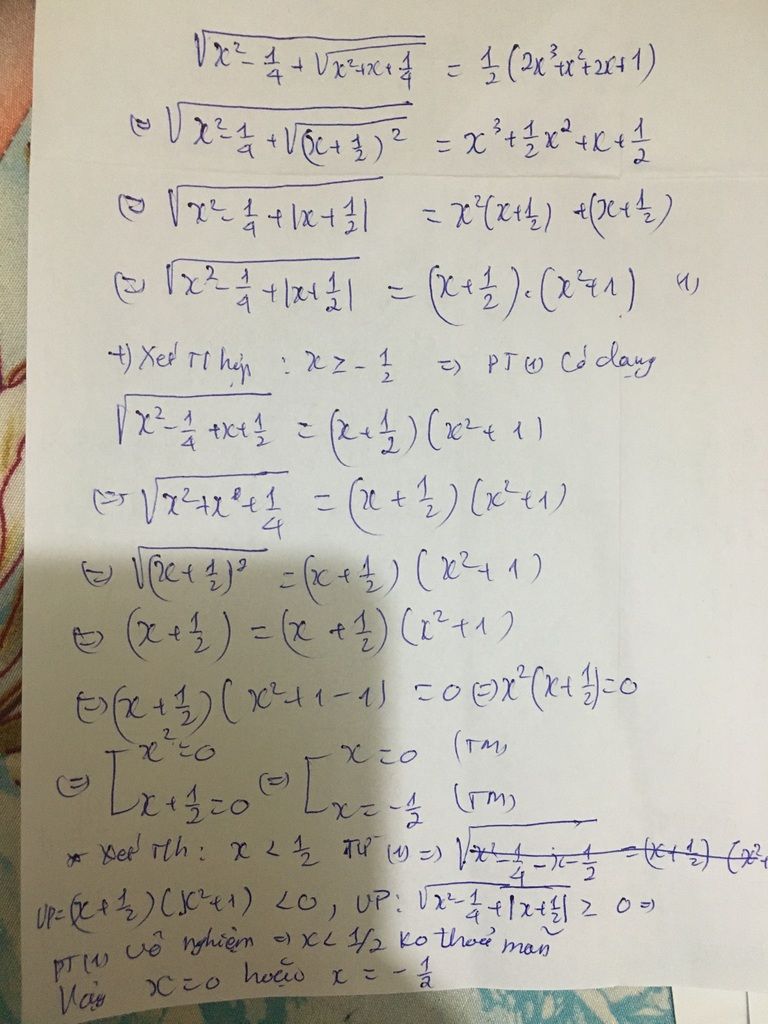 √(x² - 1/4 + √(x² + x + 1/4)) = 1/2 (2x³ + x² + 2x + 1)
(=) √(x² - 1/4 + √((x + 1/2)²)) = x³ + 1/2 x² + x + 1/2
(=) √(x² - 1/4 + |x + 1/2|) = x²(x + 1/2) + (x + 1/2)
(=) √(x² - 1/4 + |x + 1/2|) = (x + 1/2).(x² + 1) (1)
+) Xét THhợp : x ≥ - 1/2 => PT(1) Có dạng
√(x² - 1/4 + x + 1/2) = (x + 1/2)(x² + 1)
(=) √(x² + x + 1/4) = (x + 1/2)(x² + 1)
(=) √((x + 1/2)²) = (x + 1/2)(x² + 1)
(=) (x + 1/2) = (x + 1/2)(x² + 1)
(=) (x + 1/2)(x² + 1 - 1) = 0 (=) x²(x + 1/2) = 0
(=) [ x² = 0 (=) [ x = 0 (TM)
x + 1/2 = 0 x = - 1/2 (TM)
* Xét Th : x < 1/2 Từ (1) => √(x² - 1/4 - x - 1/2) = (x + 1/2)(x² +
VP = (x + 1/2)(x² + 1) < 0 , VP : √(x² - 1/4 + |x + 1/2|) ≥ 0 =>
PT(1) vô nghiệm => x < 1/2 ko thoả mãn
Vậy x = 0 hoặc x = - 1/2